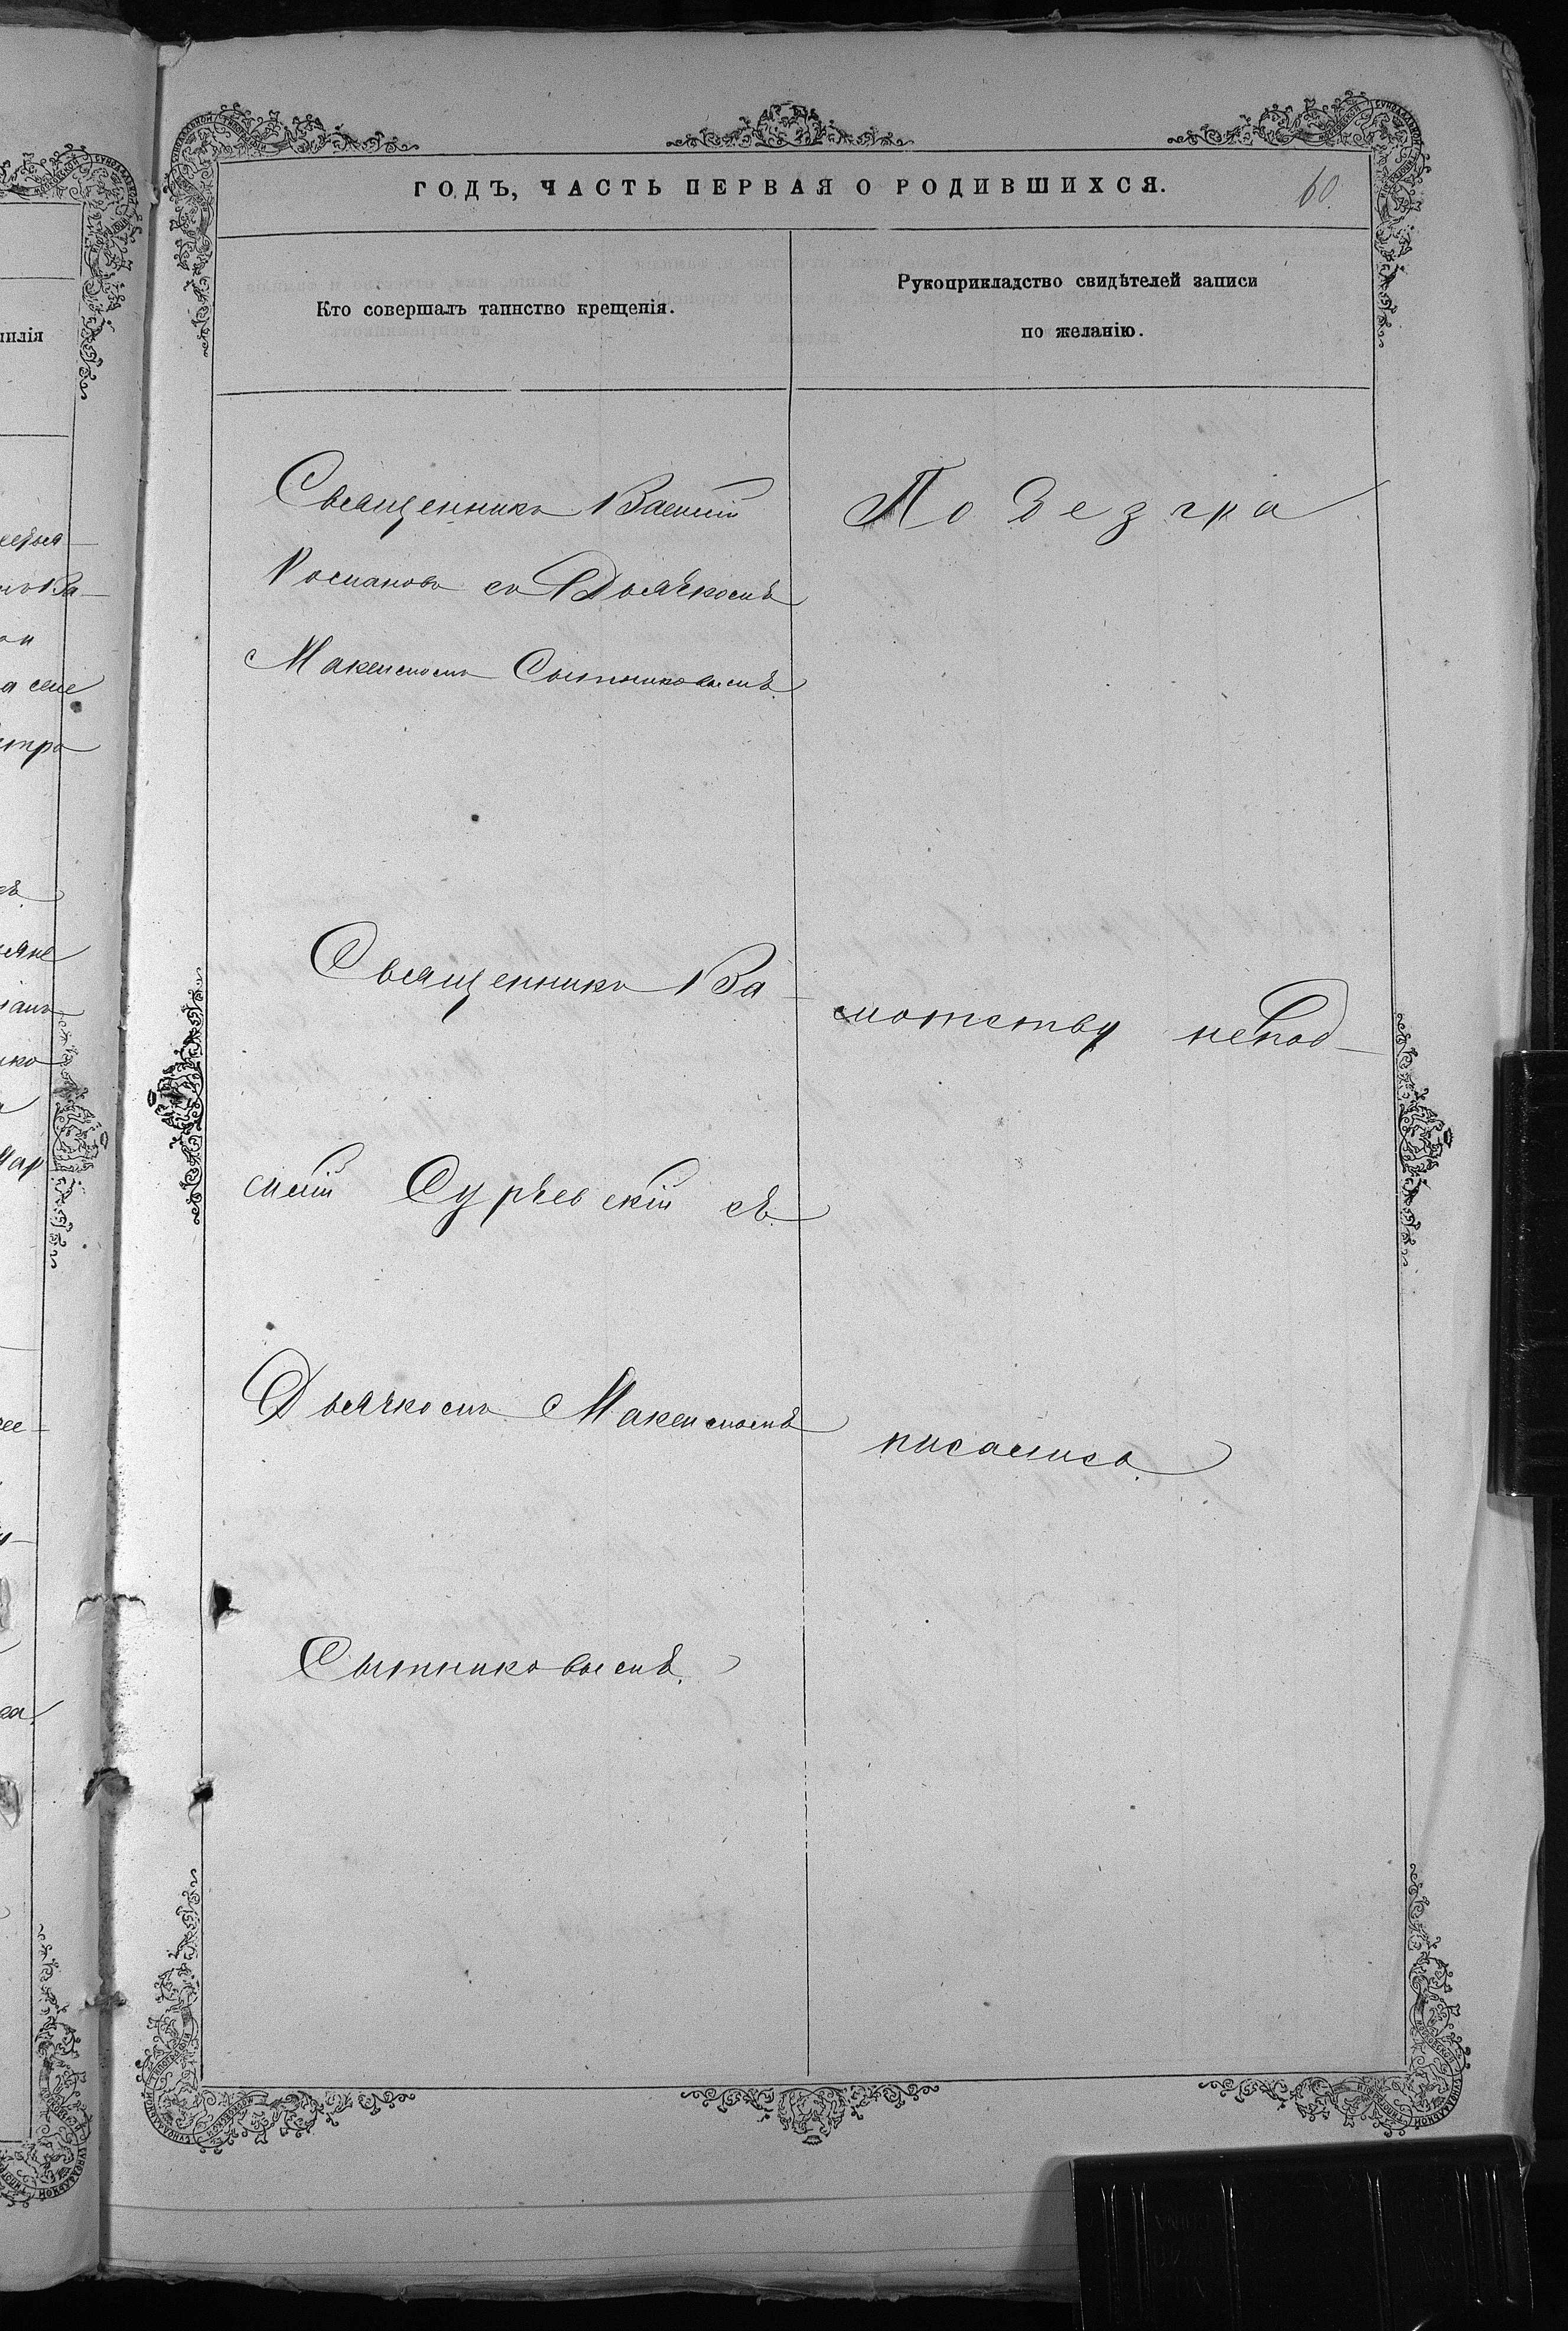 ГОДЪ, ЧАСТЬ ПЕРВАЯ О РОДИВШИХСЯ.
60
Кто совершалъ таинство крещенія.
Рукоприкладство свидѣтелей записи
по желанію.
Священникъ Василій
Космановъ съ Дьячкомъ
Максимомъ Сытниковымъ
По безгра
Священникъ Ва-
силій Сурѣевскій съ
Дьячкомъ Максимомъ
Сытниковымъ.
мотству непод-
писались.
милія